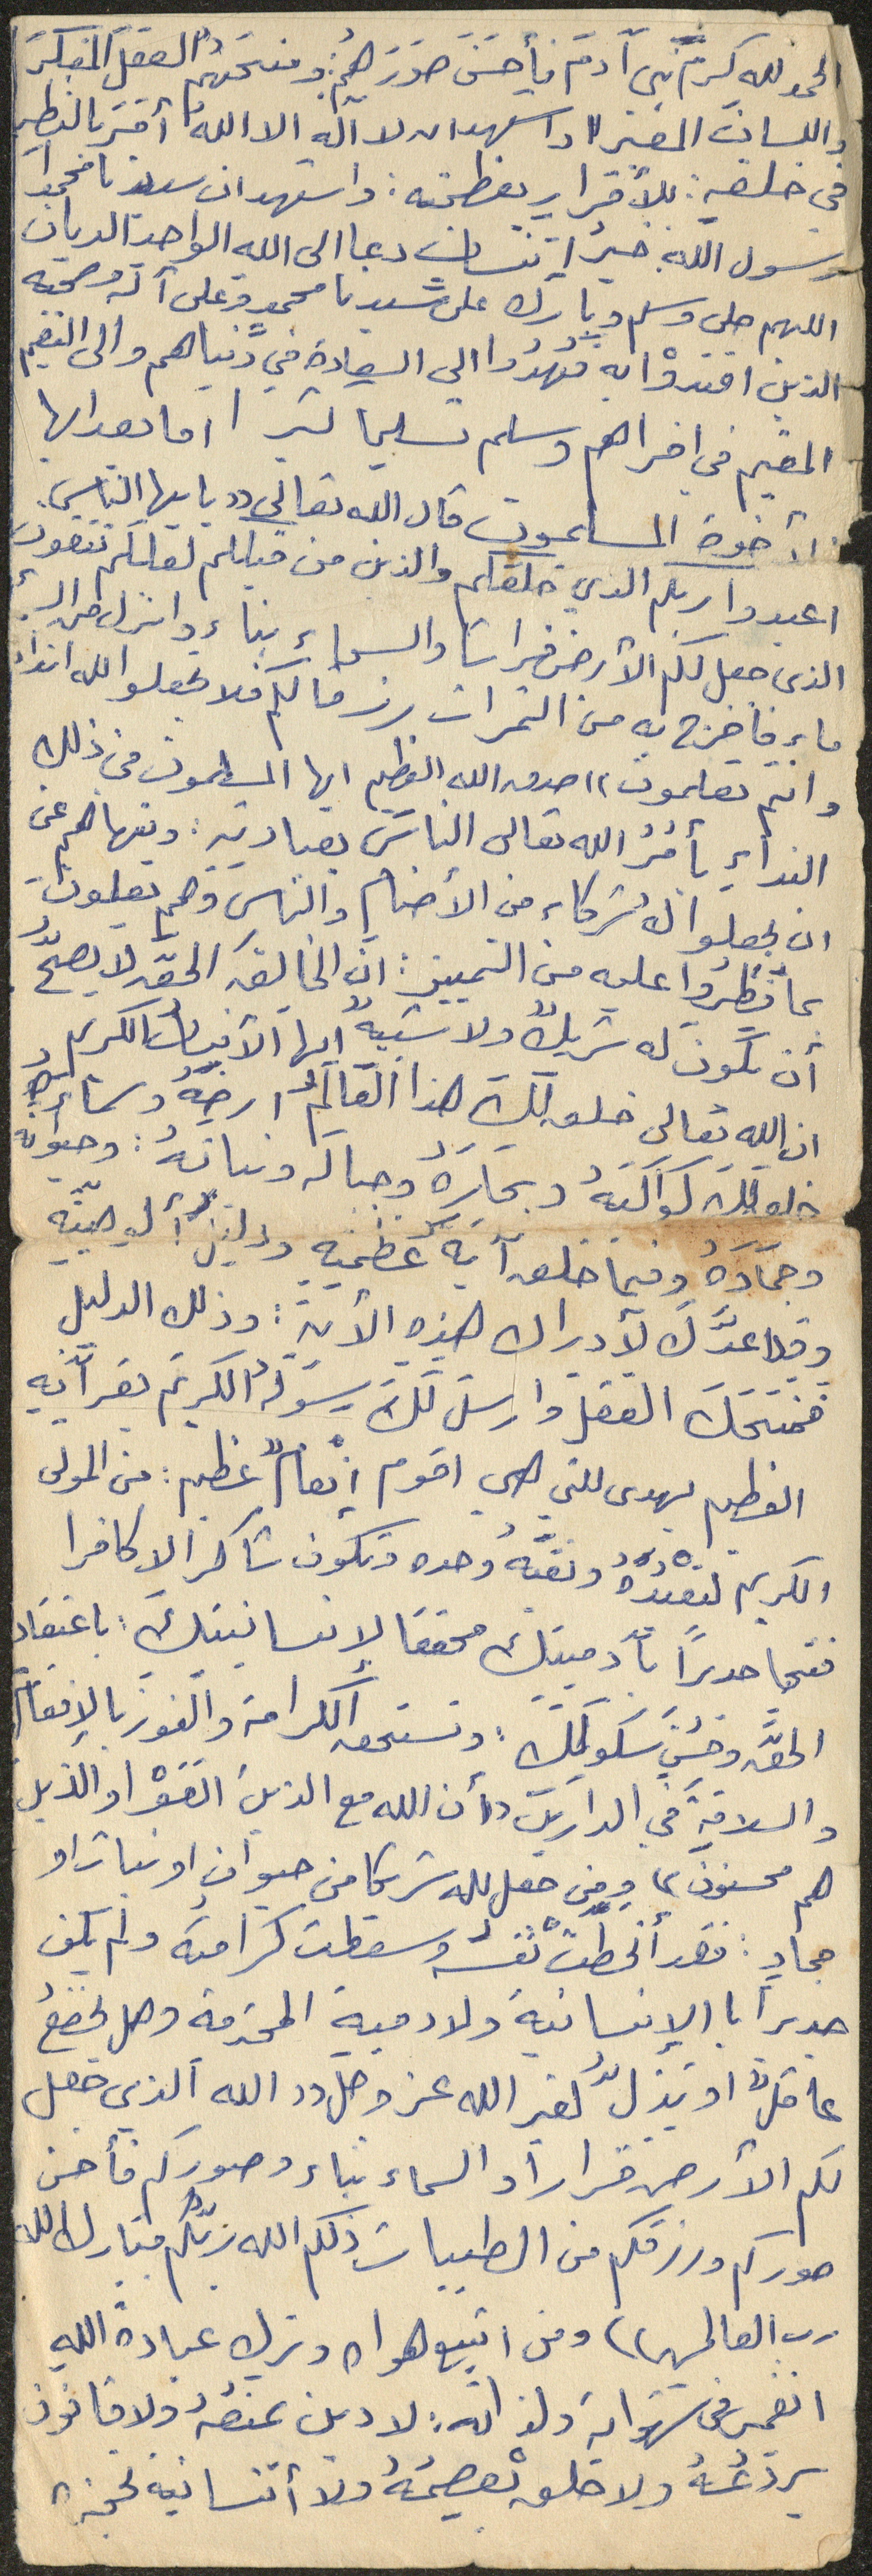 الحمد لله كرم بني آدم فأحسن صورهم: ومنحهم العقل المفكر
واللسان المعبر واشهد ان لا اله الا الله أمر بالنظر
في خلقه: للأقرار بعظمته: واشهد ان سيدنا محمدا
رسول الله خير إنسان دعا الى الله الواحد الديان
اللهم صلي وسلم وبارك على سيدنا محمد وعلى آله وصحبه
الذين اقتدوا به فهدوا الى السعادة في دنياهم والى النعيم
المقيم في اخراهم وسلم تسليما كثيرا اما بعد ايها
الأخوة المسلمون قال الله تعالى ((يا ايها الناس
اعبدوا ربكم الذي خلقكم والذين من قبلكم لعلكم تتقون
الذى جعل لكم الأرض فراشا والسماء بناء وانزل من السماء
ماء فاخرج به من الثمرات رزقا لكم فلا تجعلوا لله اندادا
وانتم تعلمون)) صدق الله العظيم ايها المسلمون في ذلك
النداء يأمر الله تعالى الناس بعبادته: وينهاهم عن
ان يجعلوا له شركاء من الأصنام والناس وهم يعلمون
بما فطروا عليه من التمييز: ان الخالق الحق لا يصح
أن يكون له شريك ولا شبيه ايها الأنسان الكريم
ان الله تعالى خلق لك هذا العالم ارضه وسماءه
خلق لك كواكبه وبحاره وجباله ونباته: وحيوانه
وجماده وفيما خلق آية عظمته ودليل ألوهيته
وقد اعدك لأدراك هذه الأية: وذلك الدليل
فمنحك العقل وارسل لك رسوله الكريم بقرآنه
العظيم يهدى للتي هي اقوم إنعام عظيم: من المولى
الكريم لتعبده وتقيه وحده وتكون شاكرا لا كافرا
فتحيا جديرا بآدميتك محققا لإنسانيتك: باعتقاد
الحق وحسن سلوكك: وتستحق الكرامة والفوز بالإنعام
والسلامة في الدارين ((أن الله مع الذين اتقوا والذين
هم محسنون)) ومن جعل لله شركا من حيوان او نبات او
جماد: فقد أنحطت نفسه وسقطت كرامته ولم يكن
جديرا با الإنسانية ولادمية المحترمة وهل يخضع
عاقل او يذل لغير الله عز وجل ((الله الذي جعل
لكم الأرض قرارا والسماء بناء وصوركم فأحسن
صوركم ورزقكم من الطيبات ذلكم الله ربكم فتبارك الله
رب العالمين)) ومن اتبع هواه وترك عبادة الله
انغمس في شهواته ولذاته: لا دين يمنعه ولا قانون
يردعه ولا خلق يعصمه ولا أنسانية تحجزه